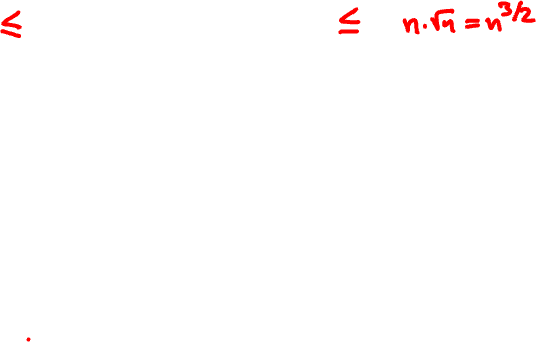 ≤ ≤ n·√n = n^{3/2}